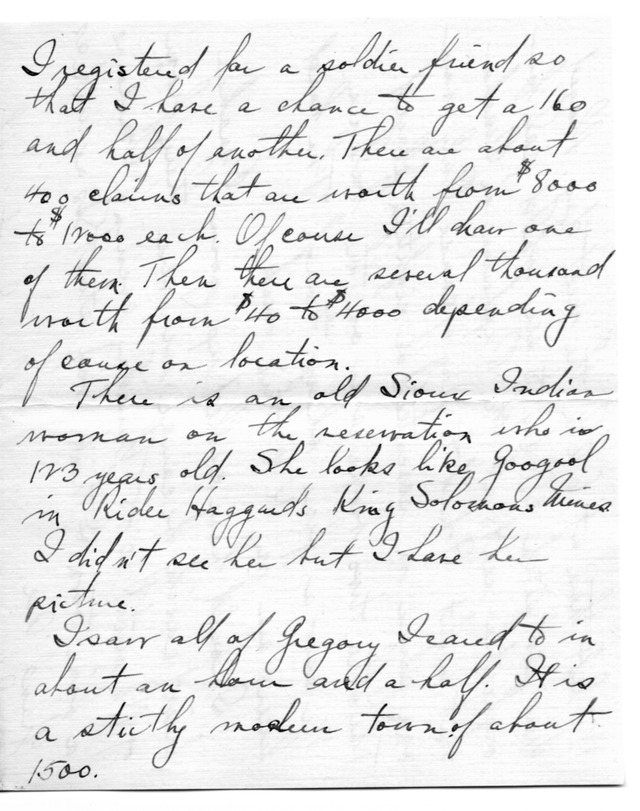 I registered for a soldier friend so
that I have a chance to get a 160
and half of another. There are about
400 claims that are worth from $8000
to $12000 each. Of couse I'll draw one
of them. Then there are several thousand
worth from $40 to $4000 depending
of course on location.
There is an old Sioux Indian
woman on the reservation who is
123 years old. She looks like Googool
in Rider Haggard's King Solomons Mines.
I didn't see her but I have her
picture.
I saw all of Gregory I cared to in
about an hour and a half. It is
a strictly modern town of about
1500.